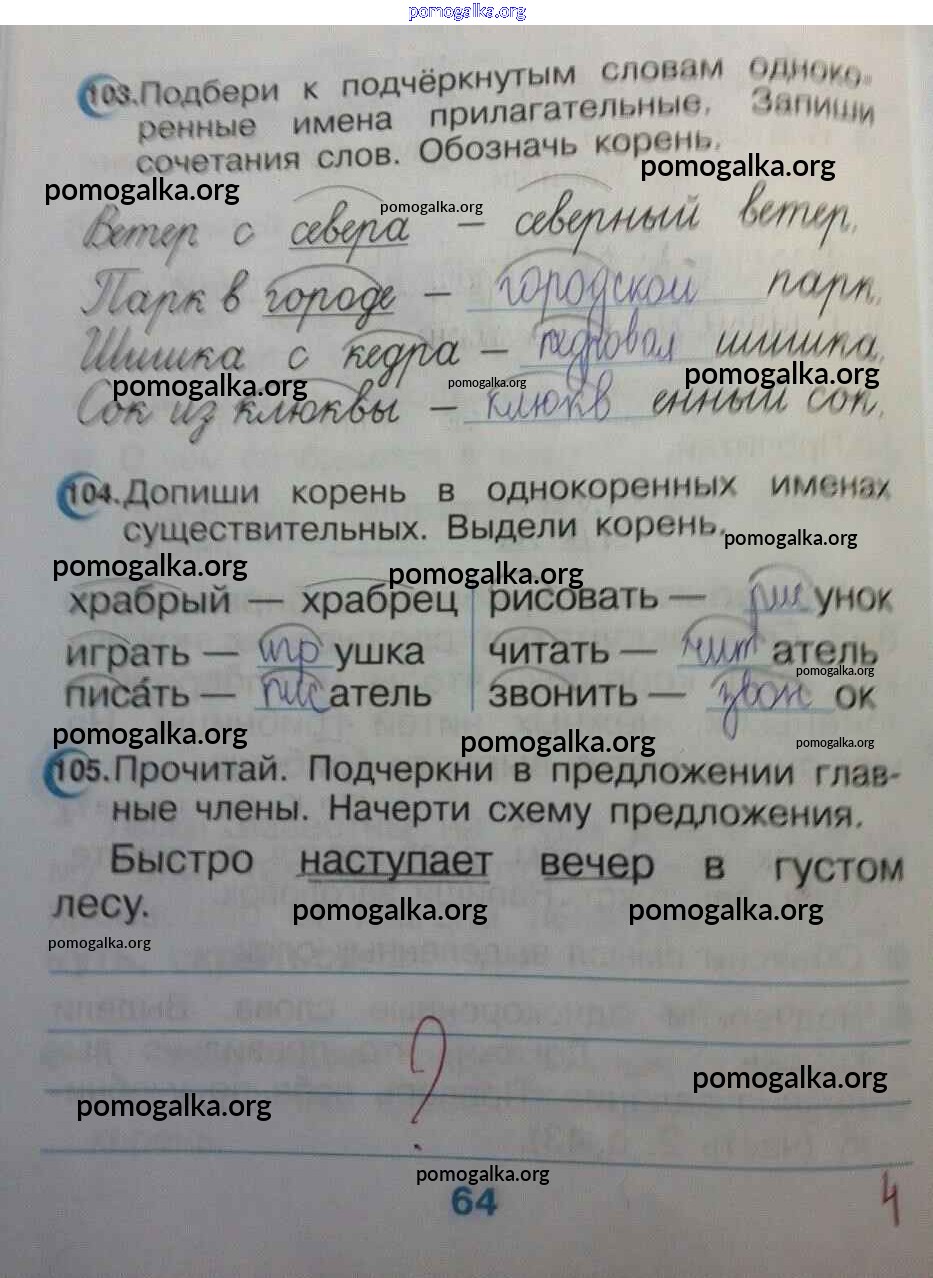 pomogalka.org
103. Подбери к подчёркнутым словам одноко-
ренные имена прилагательные. Запиши
сочетания слов. Обозначь корень.
pomogalka.org
pomogalka.org
pomogalka.org
Ветер с севера — северный ветер.
Парк в городе — городской парк.
Шишка с кедра — кедровая шишка.
pomogalka.org pomogalka.org pomogalka.org
Сок из клюквы — клюквенный сок.
104. Допиши корень в однокоренных именах
существительных. Выдели корень.
pomogalka.org
pomogalka.org pomogalka.org
храбрый — храбрец рисовать — рисунок
играть — игрушка читать — читатель
pomogalka.org
писа́ть — писатель звонить — звонок
pomogalka.org pomogalka.org pomogalka.org
105. Прочитай. Подчеркни в предложении глав-
ные члены. Начерти схему предложения.
Быстро наступает вечер в густом
лесу.
pomogalka.org pomogalka.org
pomogalka.org
?
pomogalka.org
pomogalka.org
pomogalka.org
64
4